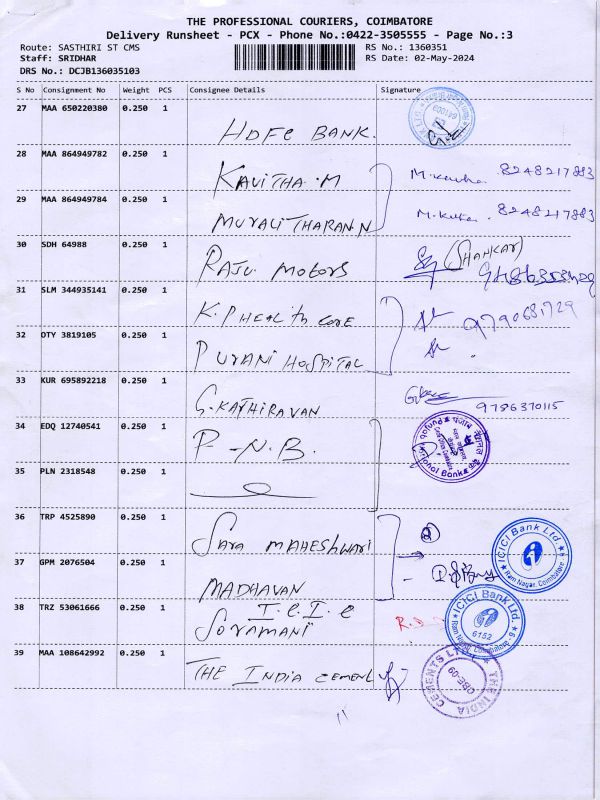 THE PROFESSIONAL COURIERS, COIMBATORE
Delivery Runsheet - PCX - Phone No.:0422-3505555 - Page No.:3
Route: SASTHIRI ST CMS
RS No.: 1360351
Staff: SRIDHAR
RS Date: 02-May-2024
DRS No.: DCJB136035103
S No Consignment No Weight PCS Consignee Details Signature
27 MAA 650220380 0.250 1
HDFC BANK.
28 MAA 864949782 0.250 1
KAVITHA.M 8248217883
29 MAA 864949784 0.250 1
MURALITHARAN N 8248217883
30 SDH 64988 0.250 1
RAJU MOTORS (SHANKAR)
31 SLM 344935141 0.250 1
K.P HEALTH CARE 9790681729
32 OTY 3819105 0.250 1
PURANI HOSPITAL
33 KUR 695892218 0.250 1
G.KATHIRAVAN 9786370115
34 EDQ 12740541 0.250 1
P-N.B.
Punjab National Bank
35 PLN 2318548 0.250 1
36 TRP 4525890 0.250 1
SARA MAHESHWARI
ICICI Bank Ltd.
Ram Nagar, Coimbatore
37 GPM 2076504 0.250 1
MADHAVAN
38 TRZ 53061666 0.250 1
I.C.I.C
SORAMANI
ICICI Bank Ltd.
6152
39 MAA 108642992 0.250 1
THE INDIA CEMENT
THE INDIA CEMENTS LTD
CBE-09